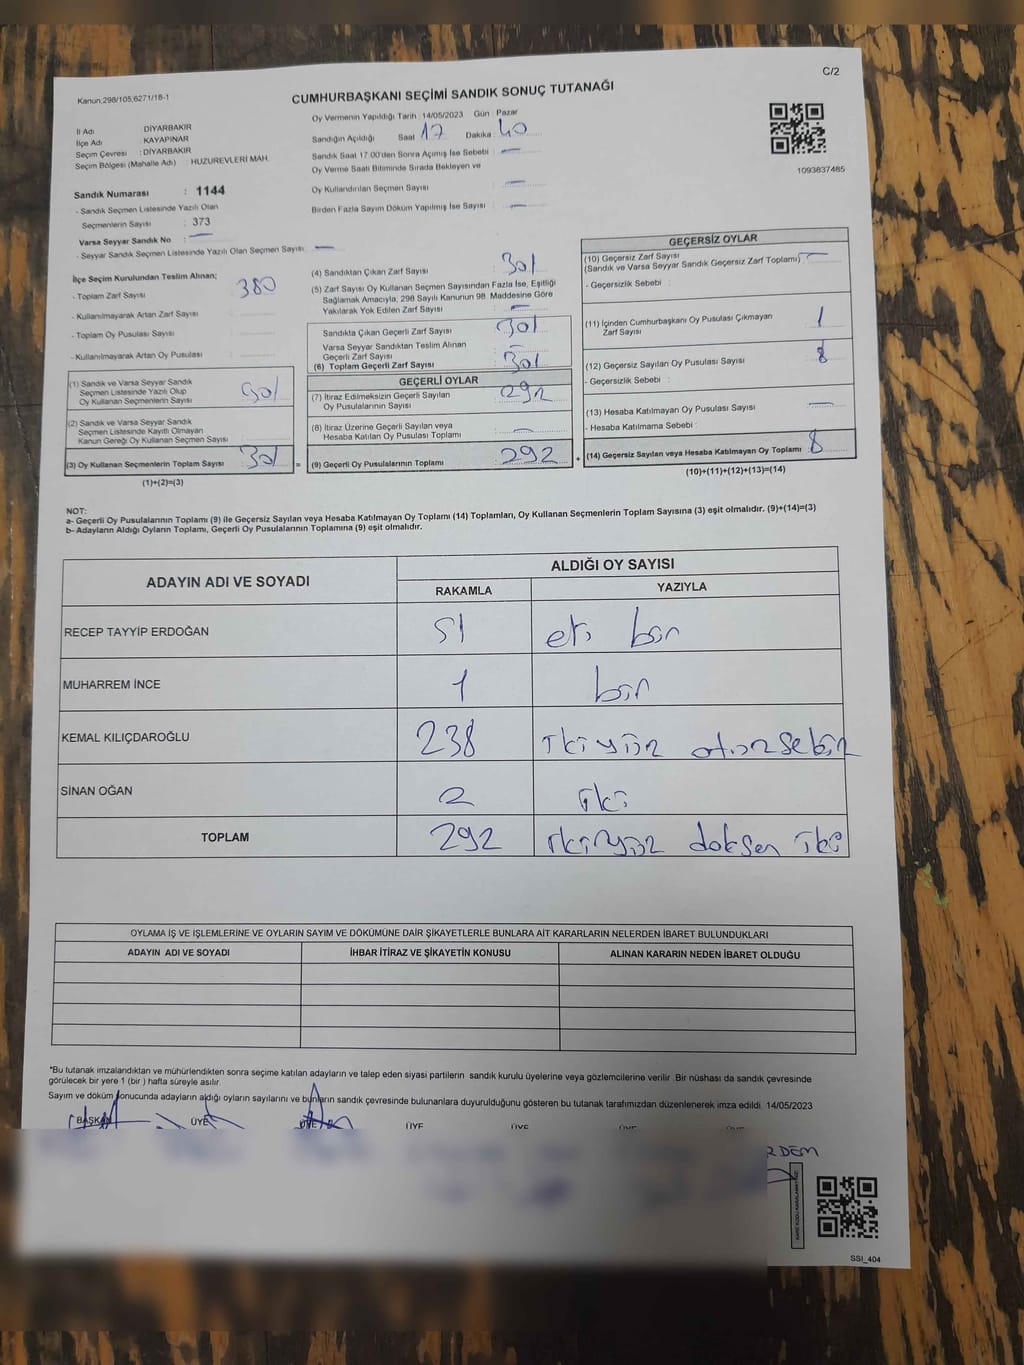 C/2
Kanun;298/105,6271/18-1
CUMHURBAŞKANI SEÇİMİ SANDIK SONUÇ TUTANAĞI
İl Adı DİYARBAKIR
İlçe Adı KAYAPINAR
Seçim Çevresi : DİYARBAKIR
Seçim Bölgesi (Mahalle Adı) : HUZUREVLERİ MAH.
Sandık Numarası : 1144
- Sandık Seçmen Listesinde Yazılı Olan
Seçmenlerin Sayısı : 373
Varsa Seyyar Sandık No : —
- Seyyar Sandık Seçmen Listesinde Yazılı Olan Seçmen Sayısı : —
Oy Vermenin Yapıldığı Tarih : 14/05/2023 Gün : Pazar
Sandığın Açıldığı Saat 17 Dakika : 40
Sandık Saat 17:00'den Sonra Açımış İse Sebebi : —
Oy Verme Saati Bitiminde Sırada Bekleyen ve
Oy Kullandırılan Seçmen Sayısı : —
Birden Fazla Sayım Döküm Yapılmış İse Sayısı : —
1093837485
İlçe Seçim Kurulundan Teslim Alınan;
- Toplam Zarf Sayısı 380
- Kullanılmayarak Artan Zarf Sayısı :
- Toplam Oy Pusulası Sayısı :
- Kullanılmayarak Artan Oy Pusulası :
(1) Sandık ve Varsa Seyyar Sandık
Seçmen Listesinde Yazılı Olup
Oy Kullanan Seçmenlerin Sayısı 301
(2) Sandık ve Varsa Seyyar Sandık
Seçmen Listesinde Kayıtlı Olmayan
Kanun Gereği Oy Kullanan Seçmen Sayısı
(3) Oy Kullanan Seçmenlerin Toplam Sayısı 301
(1)+(2)=(3)
(4) Sandıktan Çıkan Zarf Sayısı : 301
(5) Zarf Sayısı Oy Kullanan Seçmen Sayısından Fazla İse, Eşitliği
Sağlamak Amacıyla, 298 Sayılı Kanunun 98. Maddesine Göre
Yakılarak Yok Edilen Zarf Sayısı : —
Sandıkta Çıkan Geçerli Zarf Sayısı : 301
Varsa Seyyar Sandıktan Teslim Alınan
Geçerli Zarf Sayısı : —
(6) Toplam Geçerli Zarf Sayısı : 301
GEÇERLİ OYLAR
(7) İtiraz Edilmeksizin Geçerli Sayılan
Oy Pusulalarının Sayısı : 292
(8) İtiraz Üzerine Geçerli Sayılan veya
Hesaba Katılan Oy Pusulası Toplamı : —
= (9) Geçerli Oy Pusulalarının Toplamı : 292
GEÇERSİZ OYLAR
(10) Geçersiz Zarf Sayısı
(Sandık ve Varsa Seyyar Sandık Geçersiz Zarf Toplamı) : —
- Geçersizlik Sebebi :
(11) İçinden Cumhurbaşkanı Oy Pusulası Çıkmayan
Zarf Sayısı : 1
(12) Geçersiz Sayılan Oy Pusulası Sayısı : 8
- Geçersizlik Sebebi :
(13) Hesaba Katılmayan Oy Pusulası Sayısı : —
- Hesaba Katılmama Sebebi :
+ (14) Geçersiz Sayılan veya Hesaba Katılmayan Oy Toplamı : 8
(10)+(11)+(12)+(13)=(14)
NOT:
a- Geçerli Oy Pusulalarının Toplamı (9) ile Geçersiz Sayılan veya Hesaba Katılmayan Oy Toplamı (14) Toplamları, Oy Kullanan Seçmenlerin Toplam Sayısına (3) eşit olmalıdır. (9)+(14)=(3)
b- Adayların Aldığı Oyların Toplamı, Geçerli Oy Pusulalarının Toplamına (9) eşit olmalıdır.
ADAYIN ADI VE SOYADI ALDIĞI OY SAYISI
RAKAMLA YAZIYLA
RECEP TAYYİP ERDOĞAN 51 eti bir
MUHARREM İNCE 1 bir
KEMAL KILIÇDAROĞLU 238 ikiyüz otuzsekiz
SİNAN OĞAN 2 iki
TOPLAM 292 ikiyüz doksan iki
OYLAMA İŞ VE İŞLEMLERİNE VE OYLARIN SAYIM VE DÖKÜMÜNE DAİR ŞİKAYETLERLE BUNLARA AİT KARARLARIN NELERDEN İBARET BULUNDUKLARI
ADAYIN ADI VE SOYADI İHBAR İTİRAZ VE ŞİKAYETİN KONUSU ALINAN KARARIN NEDEN İBARET OLDUĞU
*Bu tutanak imzalandıktan ve mühürlendikten sonra seçime katılan adayların ve talep eden siyasi partilerin sandık kurulu üyelerine veya gözlemcilerine verilir .Bir nüshası da sandık çevresinde
görülecek bir yere 1 (bir ) hafta süreyle asılır.
Sayım ve döküm sonucunda adayların aldığı oyların sayılarını ve bunların sandık çevresinde bulunanlara duyurulduğunu gösteren bu tutanak tarafımızdan düzenlenerek imza edildi. 14/05/2023
BAŞKAN ÜYE ÜYE ÜYE ÜYE ÜYE ÜYE
SSI_404